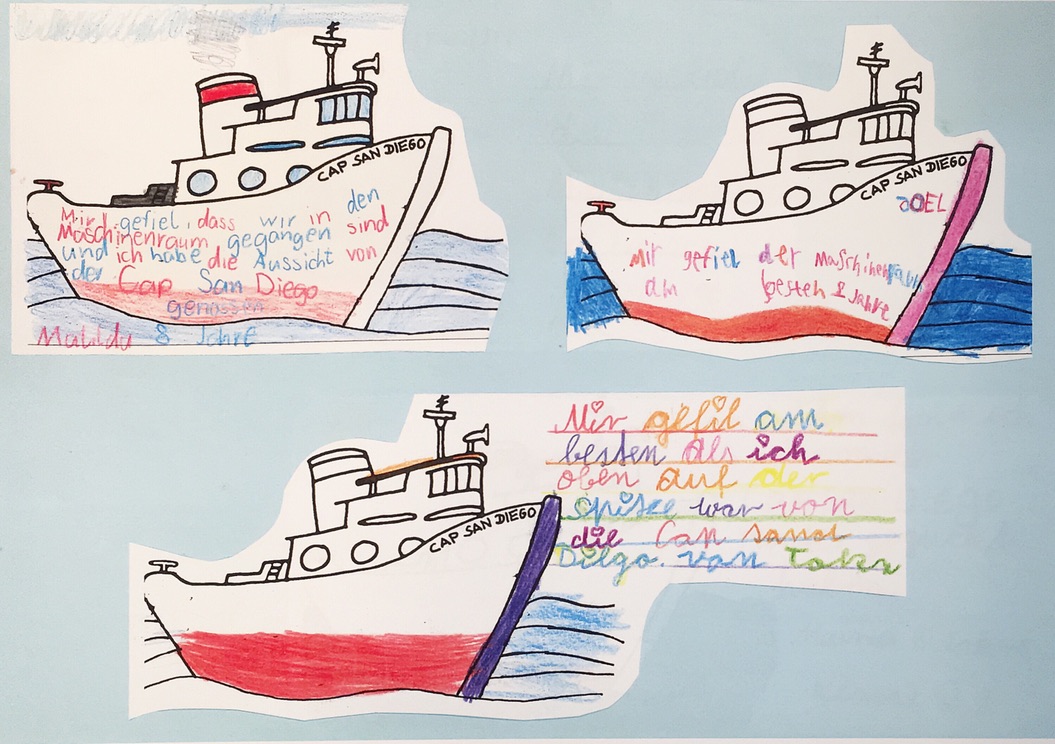 CAP SAN DIEGO
Mir gefiel, dass wir in den
Maschinenraum gegangen sind
und ich habe die Aussicht von
der Cap San Diego
genossen
8 Jahre
CAP SAN DIEGO
JOEL
Mir gefiel der Maschinenraum
am besten 8 Jahre
CAP SAN DIEGO
Mir gefil am
besten als ich
oben auf der
spitze war von
die Cap sand
Diego. von